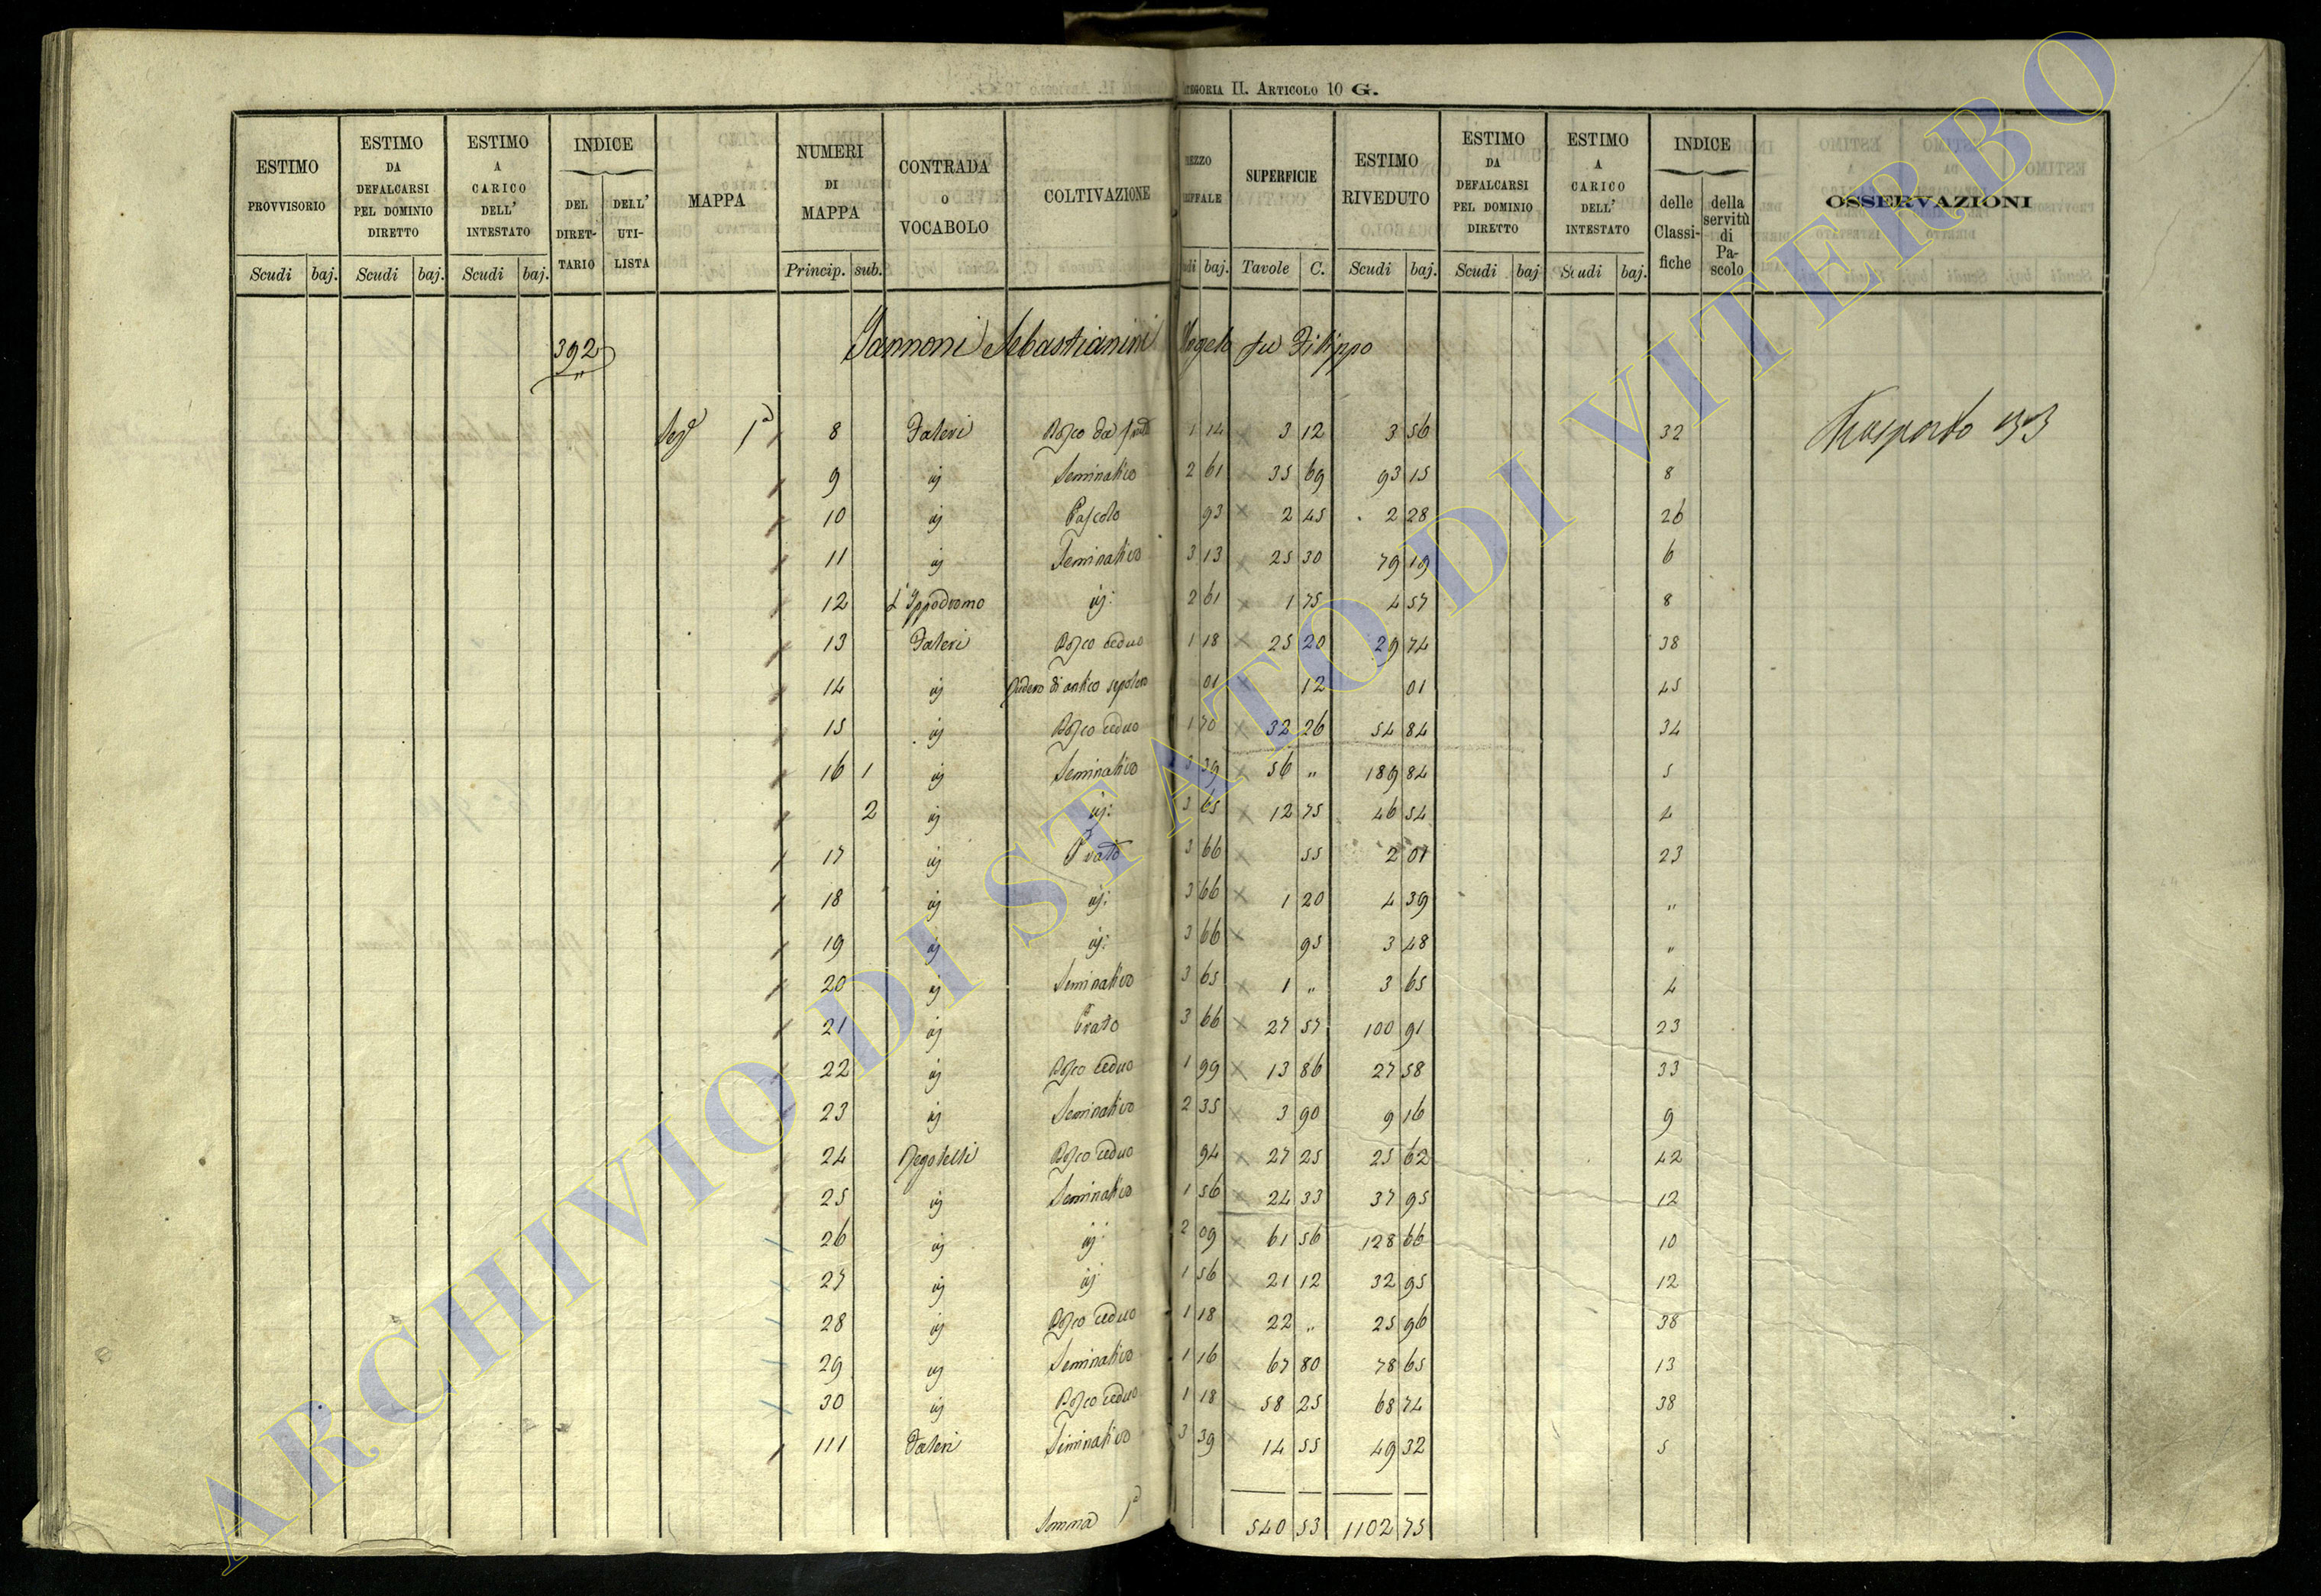 Categoria II. Articolo 10 G.
ESTIMO PROVVISORIO Scudi baj.
ESTIMO DA DEFALCARSI PEL DOMINIO DIRETTO Scudi baj.
ESTIMO A CARICO DELL' INTESTATO Scudi baj.
INDICE DEL DIRET-TARIO DELL' UTI-LISTA
MAPPA
NUMERI DI MAPPA Princip. sub.
CONTRADA O VOCABOLO
COLTIVAZIONE
SUPERFICIE Tavole C.
ESTIMO RIVEDUTO Scudi baj.
ESTIMO DA DEFALCARSI PEL DOMINIO DIRETTO Scudi baj
ESTIMO A CARICO DELL' INTESTATO Scudi baj.
INDICE delle Classi-fiche della servitù di Pa-scolo
OSSERVAZIONI
392 Jannoni Sebastianini Angelo fu Filippo
1ª 8 Faleri Bosco da 1 14 3 12 3 56 32 Trasporto
9 ij Seminativo 2 61 35 69 93 15 8
10 ij Pascolo 93 2 45 2 28 26
11 ij Seminativo 3 13 25 30 79 19 6
12 L'Ippodromo ij: 2 61 1 75 4 57 8
13 Faleri Bosco ceduo 1 18 25 20 29 74 38
14 ij Rudero di antico sepolcro 01 12 01 45
15 ij Bosco ceduo 1 70 32 26 54 84 34
16 1 ij Seminativo 3 39 56 " 189 84 5
2 ij ij: 3 65 12 75 46 54 4
17 ij Prato 3 66 55 2 01 23
18 ij ij: 3 66 1 20 4 39 "
19 ij ij: 3 66 95 3 48 "
20 ij Seminativo 3 65 1 " 3 65 4
21 ij Prato 3 66 27 57 100 91 23
22 ij Bosco ceduo 1 99 13 86 27 58 33
23 ij Seminativo 2 35 3 90 9 16 9
24 Regolelli Bosco ceduo 94 27 25 25 62 42
25 ij Seminativo 1 56 24 33 37 95 12
26 ij ij 2 09 61 56 128 66 10
27 ij ij 1 56 21 12 32 95 12
28 ij Bosco ceduo 1 18 22 " 25 96 38
29 ij Seminativo 1 16 67 80 78 65 13
30 ij Bosco ceduo 1 18 58 25 68 74 38
111 Faleri Seminativo 3 39 14 55 49 32 5
Somma 1ª 540 53 1102 75
ARCHIVIO DI STATO DI VITERBO